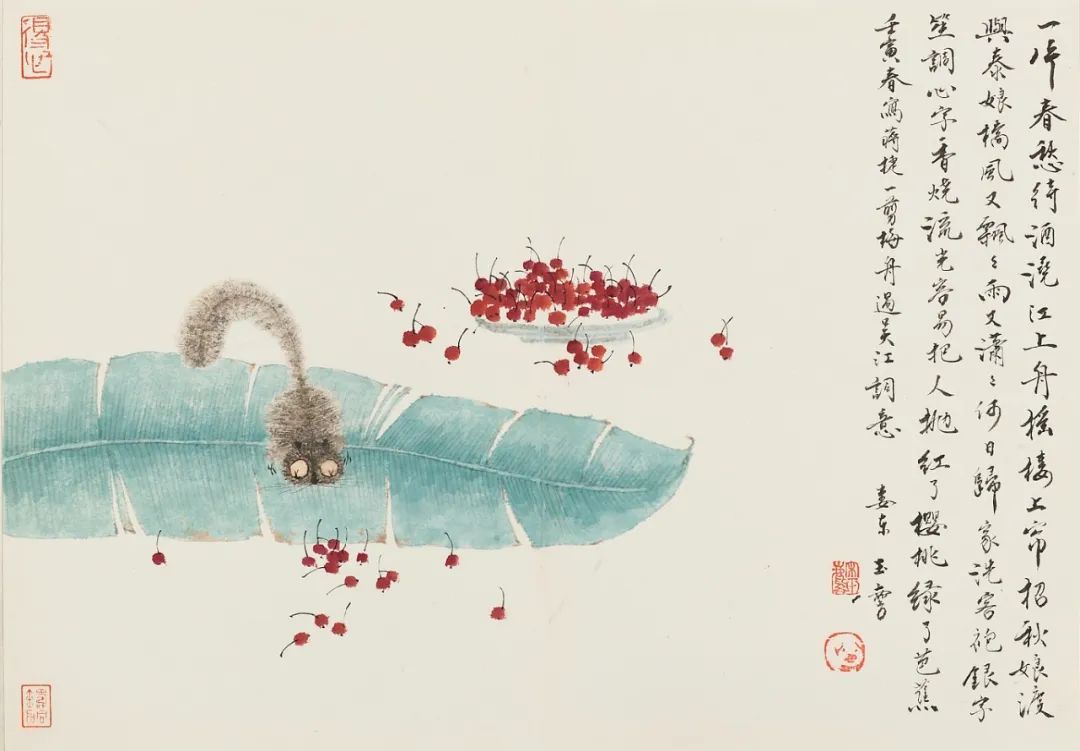 一片春愁待酒澆江上舟摇楼上帘招秋娘渡
與泰娘橋風又飄々雨又瀟々何日歸家洗客袍銀字
笙調心字香燒流光容易把人抛紅了櫻桃緑了芭蕉
壬寅春寫蔣捷一剪梅舟過吴江詞意 婁东